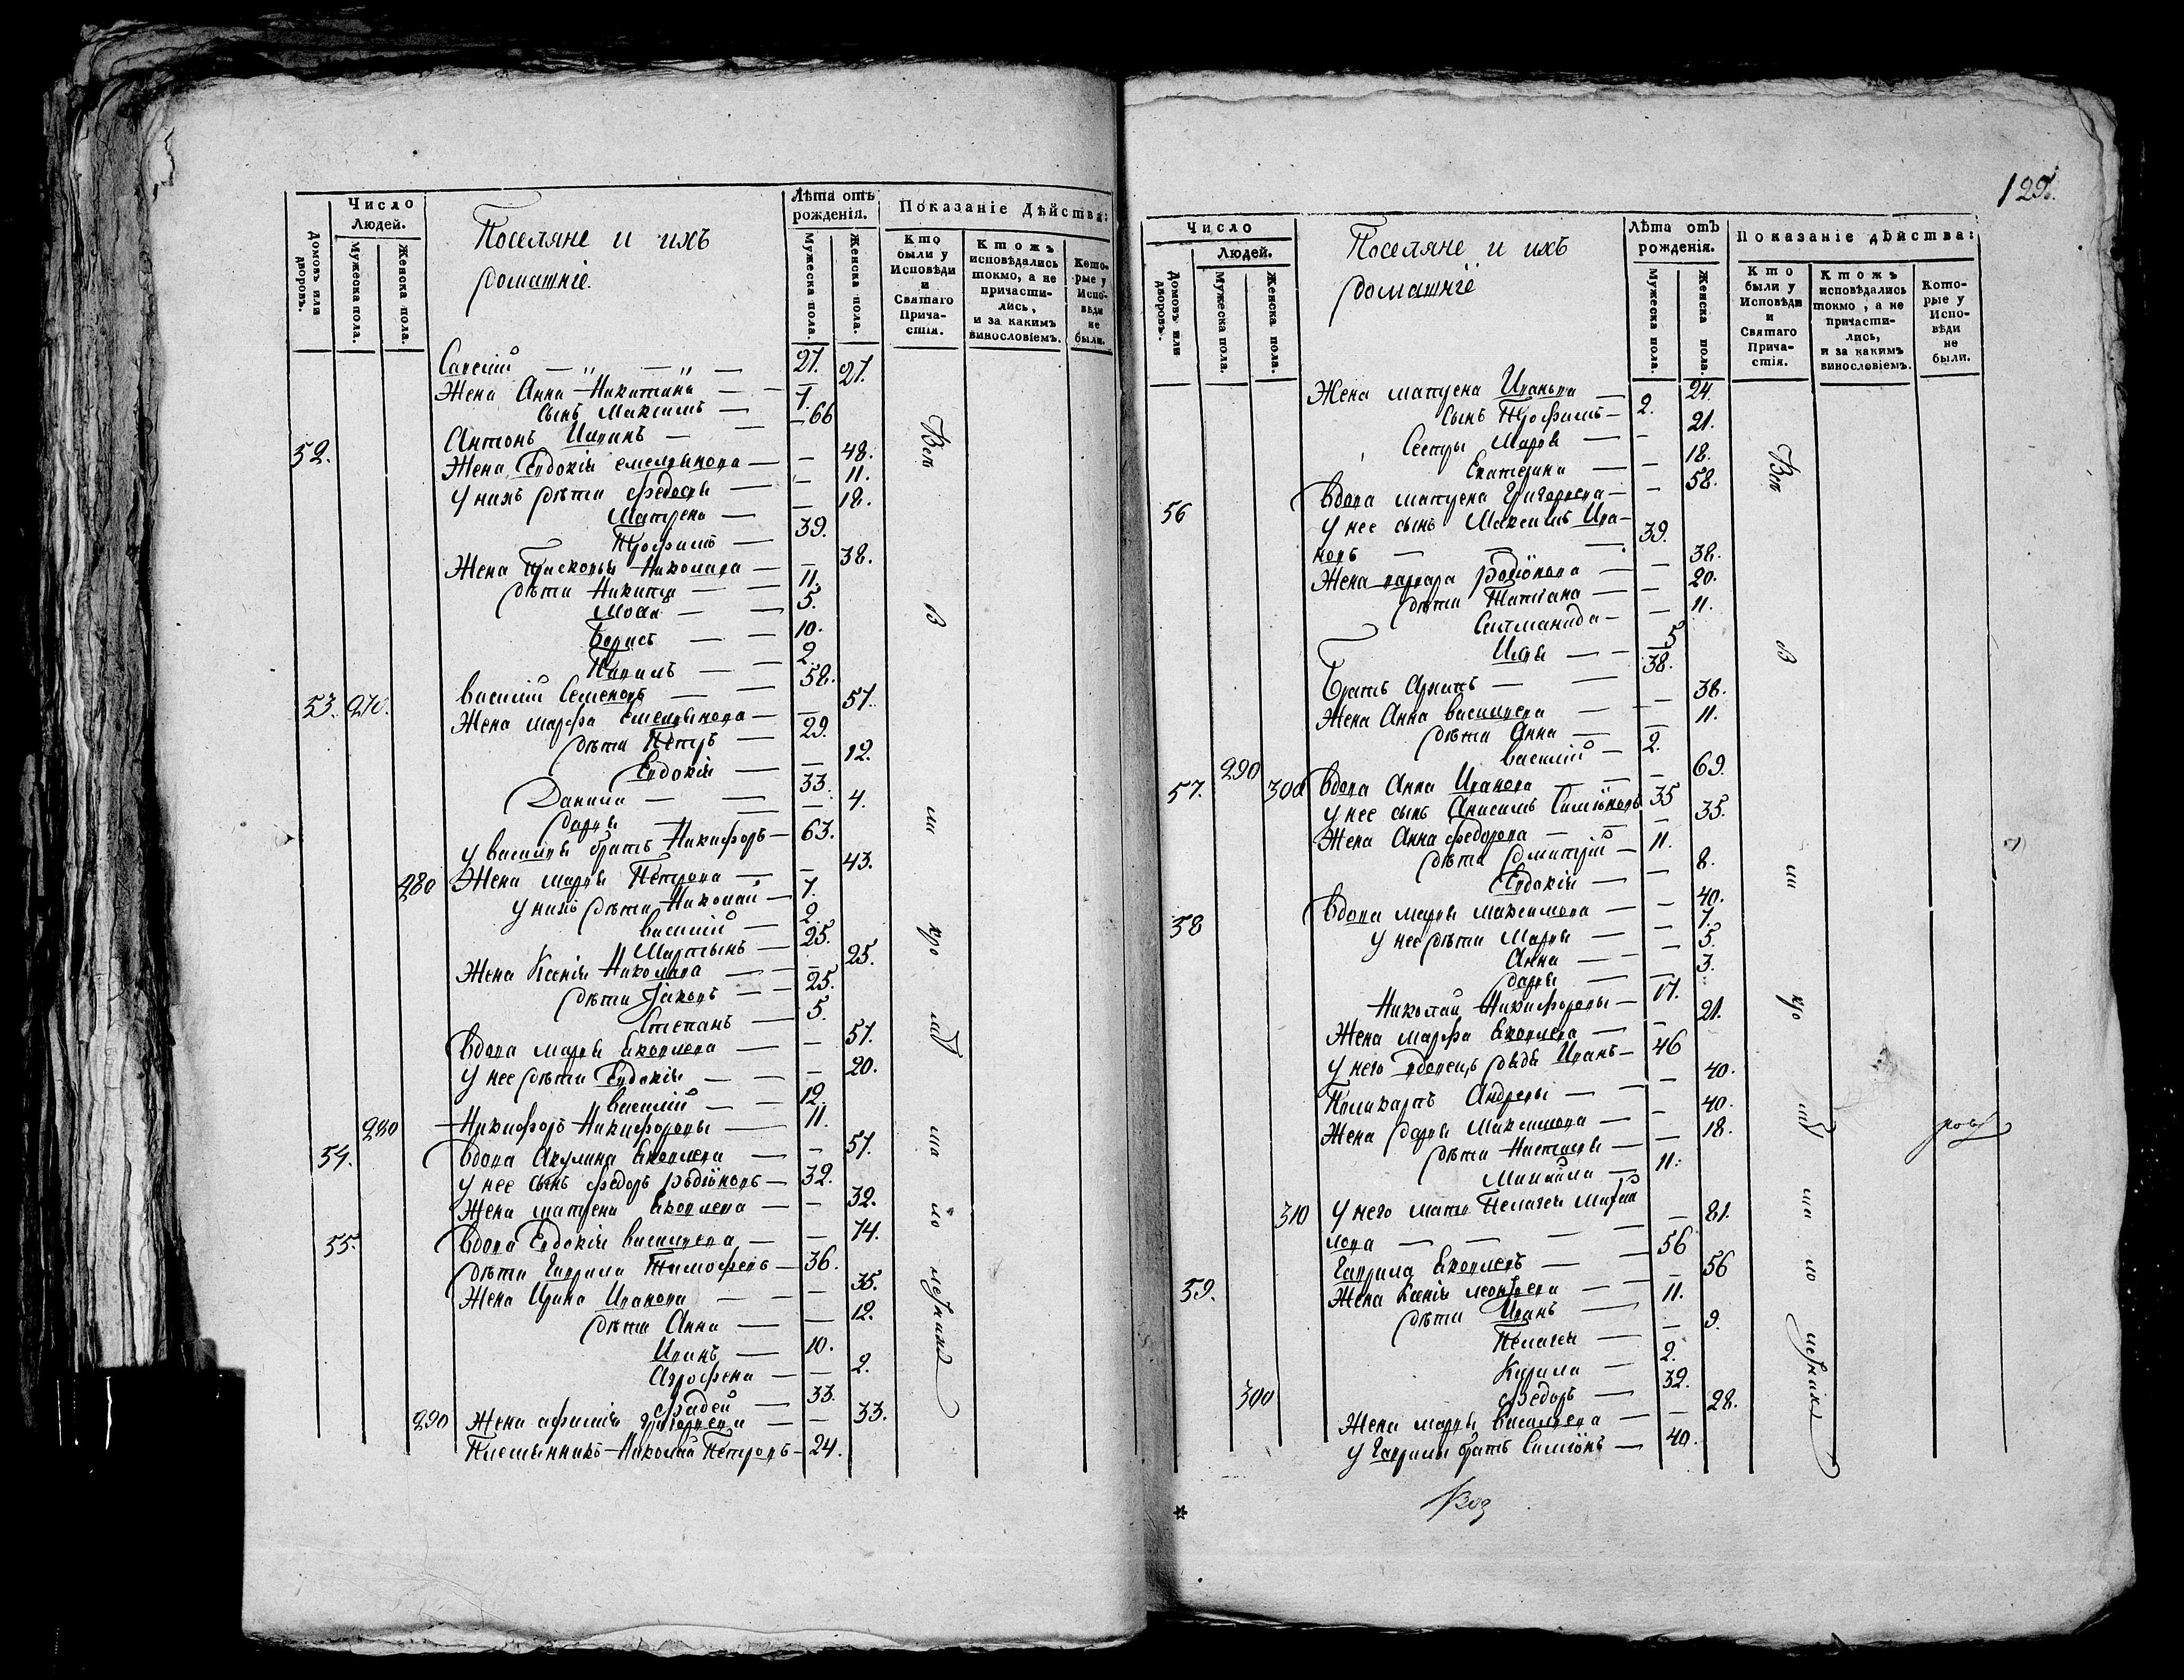 Число
Людей.
Домовъ или дворовъ.
Мужеска пола.
Женска пола.
Поселяне и ихъ
домашніе.
Лѣта отъ
рожденія.
Мужеска пола.
Женска пола.
Показаніе Дѣйства:
Кто были у Исповѣди и Святаго Причастія.
Ктожъ исповѣдались токмо, а не причастились, и за какимъ винословіемъ.
Которые у Исповѣди не были.
Савелій — 27.
Жена Анна Никитина — 27.
сынъ Максимъ — 1.
52. Антонъ — 66
Жена Евдокія Емельянова — 48.
у нихъ дѣти Федосья — 11.
Матрена — 18.
Трофимъ — 39.
Жена Прасковья Николаева — 38.
дѣти Никита — 11.
5.
Борисъ — 10.
2.
53. 270. Василій Семеновъ — 58.
Жена Марфа Емельянова — 57.
дѣти Петръ — 29.
Евдокія — 12.
Данила — 33.
Дарья — 4.
у Василья братъ Никифоръ — 63.
280 Жена Марья Петрова — 43.
у нихъ дѣти Николай — 7.
Василій — 2.
Мартынъ — 25.
Жена Ксенія Николаева — 25.
дѣти Яковъ — 25.
Степанъ — 5.
Вдова Марья Яковлева — 57.
у нее дѣти Евдокія — 20.
Василій — 12.
280 Никифоръ Никифоровъ — 11.
54. Вдова Акулина Яковлева — 57.
у нее сынъ Федоръ Родіоновъ — 32.
Жена Матрена Яковлева — 32.
55. Вдова Евдокія Васильева — 74.
дѣти Гаврила Тимофеевъ — 36.
Жена Ирина Иванова — 35.
дѣти Анна — 12.
Иванъ — 10.
Агрофена — 2.
Фадей — 33.
290 Жена Афимія Григорьева — 33.
Племянникъ Николай Петровъ — 24.
Всѣ
129.
Число
Людей.
Домовъ или дворовъ.
Мужеска пола.
Женска пола.
Поселяне и ихъ
домашніе
Лѣта отъ
рожденія.
Мужеска пола.
Женска пола.
Показаніе дѣйства:
Кто были у Исповѣди и Святаго Причастія.
Ктожъ исповѣдались токмо, а не причастились, и за какимъ винословіемъ.
Которые у Исповѣди не были.
Жена Матрена — 24.
сынъ Трофимъ — 2.
Сестры Марья — 21.
Екатерина — 18.
56 Вдова Матрена Григорьева — 58.
у нее сынъ Максимъ Ива-
новъ — 39.
Жена Варвара Родіонова — 38.
дѣти Татіана — 20.
11.
Илья — 5
Братъ — 38.
Жена Анна Васильева — 38.
дѣти Анна — 11.
Василій — 2.
57. 290 300 Вдова Анна Иванова — 69.
у нее сынъ Анисимъ Симіоновъ 35
Жена Анна Федорова — 35.
дѣти Дмитрій — 11.
Евдокія — 8.
58 Вдова Марья Максимова — 40.
у нее дѣти Марья — 7.
Анна — 5.
Дарья — 3.
Николай Никифоровъ — 17.
Жена Марфа Яковлева — 21.
у него дядя Иванъ — 46
Поликарпъ Андреевъ — 40.
Жена Дарья Максимова — 40.
дѣти Настасья — 18.
Михайла — 11.
310 у него мать Пелагея Михай
лова — 81.
59. Гаврила Яковлевъ — 56
Жена Ксенія Леонтьева — 56
дѣти Иванъ — 11.
Пелагея — 9.
Кирила — 2.
300 Федоръ — 32.
Жена Марья Васильева — 28.
у Гаврилы братъ Симіонъ — 40.
Всѣ